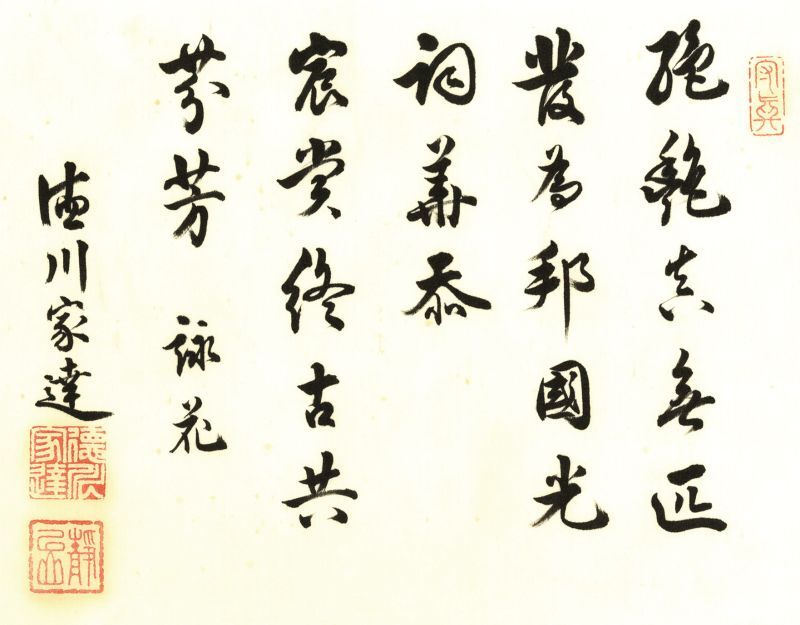 絶艶真無匹
發為邦國光
詞華忝
宸賞終古共
芬芳 詠花
徳川家達
德川家達
靜岳